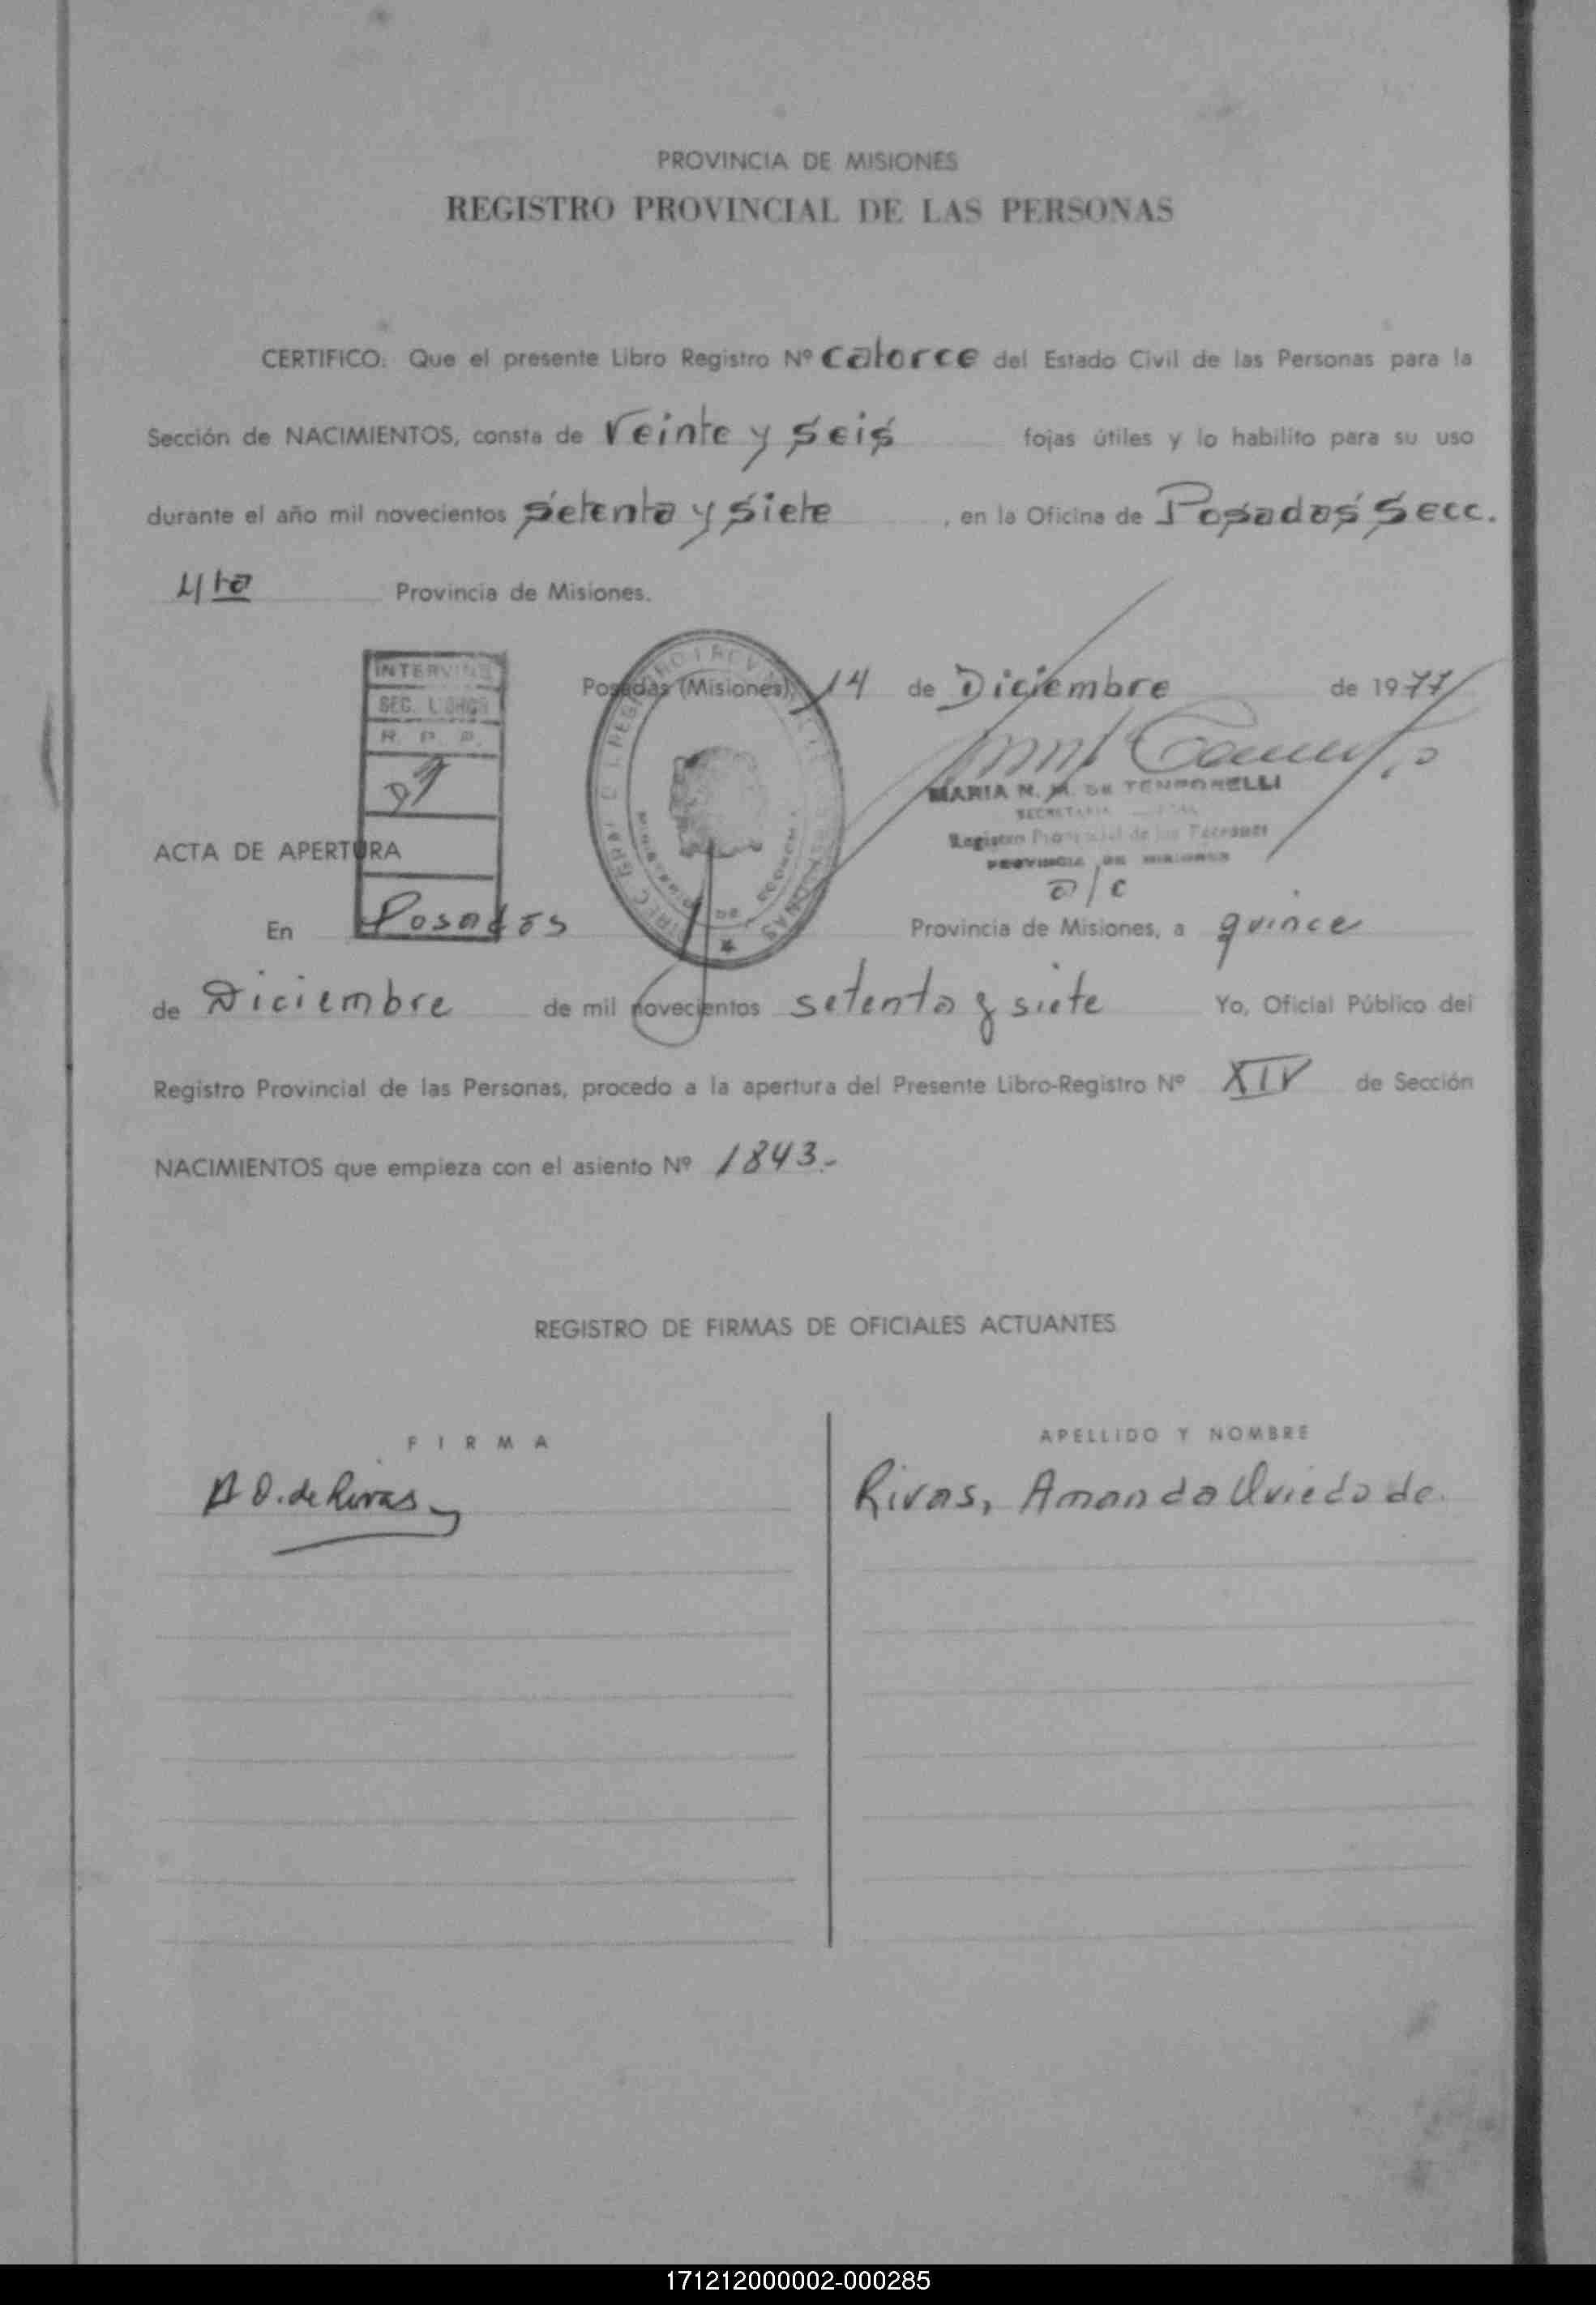 PROVINCIA DE MISIONES
REGISTRO PROVINCIAL DE LAS PERSONAS
CERTIFICO: Que el presente Libro Registro Nº Catorce del Estado Civil de las Personas para la
Sección de NACIMIENTOS, consta de Veinte y seis fojas útiles y lo habilito para su uso
durante el año mil novecientos setenta y siete, en la Oficina de Posadas Secc.
4ta Provincia de Misiones.
INTERVINO
SEC. LIBROS
R. P. P.
Posadas (Misiones), 14 de Diciembre de 1977
MARIA N. M. DE TEMPORELLI
Registro Provincial de las Personas
PROVINCIA DE MISIONES
a/c
ACTA DE APERTURA
En Posadas Provincia de Misiones, a quince
de Diciembre de mil novecientos setenta y siete Yo, Oficial Público del
Registro Provincial de las Personas, procedo a la apertura del Presente Libro-Registro Nº XIV de Sección
NACIMIENTOS que empieza con el asiento Nº 1843.-
REGISTRO DE FIRMAS DE OFICIALES ACTUANTES
FIRMA
APELLIDO Y NOMBRE
A O. de Rivas
Rivas, Amanda Oviedo de.
171212000002-000285